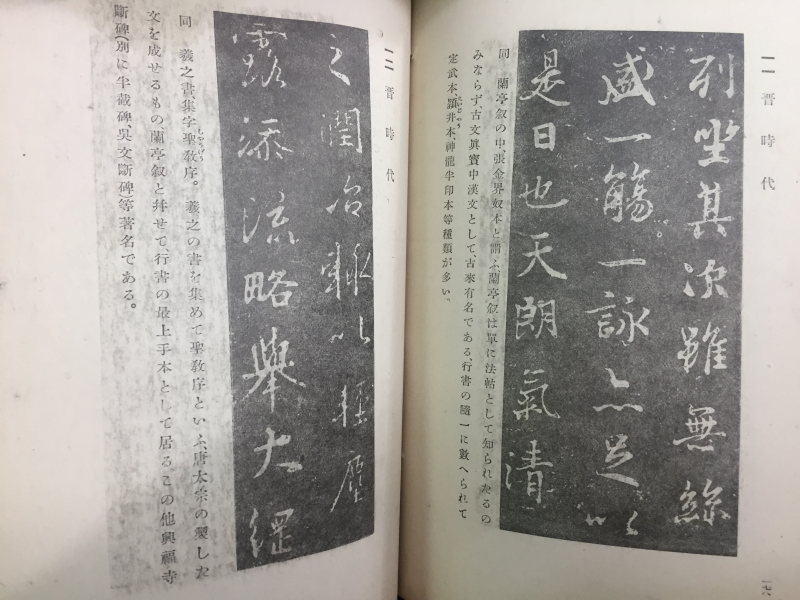 一一 晋時代
列坐其次雖無絲
盛一觴一詠亦足以
是日也天朗氣清
同 蘭亭敘の中、張金界奴本と謂ふ、蘭亭敘は單に法帖として知られたるの
みならず、古文眞寳中漢文として、古來有名である、行書の隨一に數へられて
定武本、潁井本、神龍半印本等種類が多い。
一六
一二 晋時代
之潤冶輒以輕塵
露添流略擧大綱
同 羲之書集字聖敎序。羲之の書を集めて聖敎序といふ、唐太宗の製した
文を成せるもの蘭亭敘と幷せて、行書の最上手本として居る。この他興福寺
斷碑(別に半截碑、吳文斷碑)等著名である。